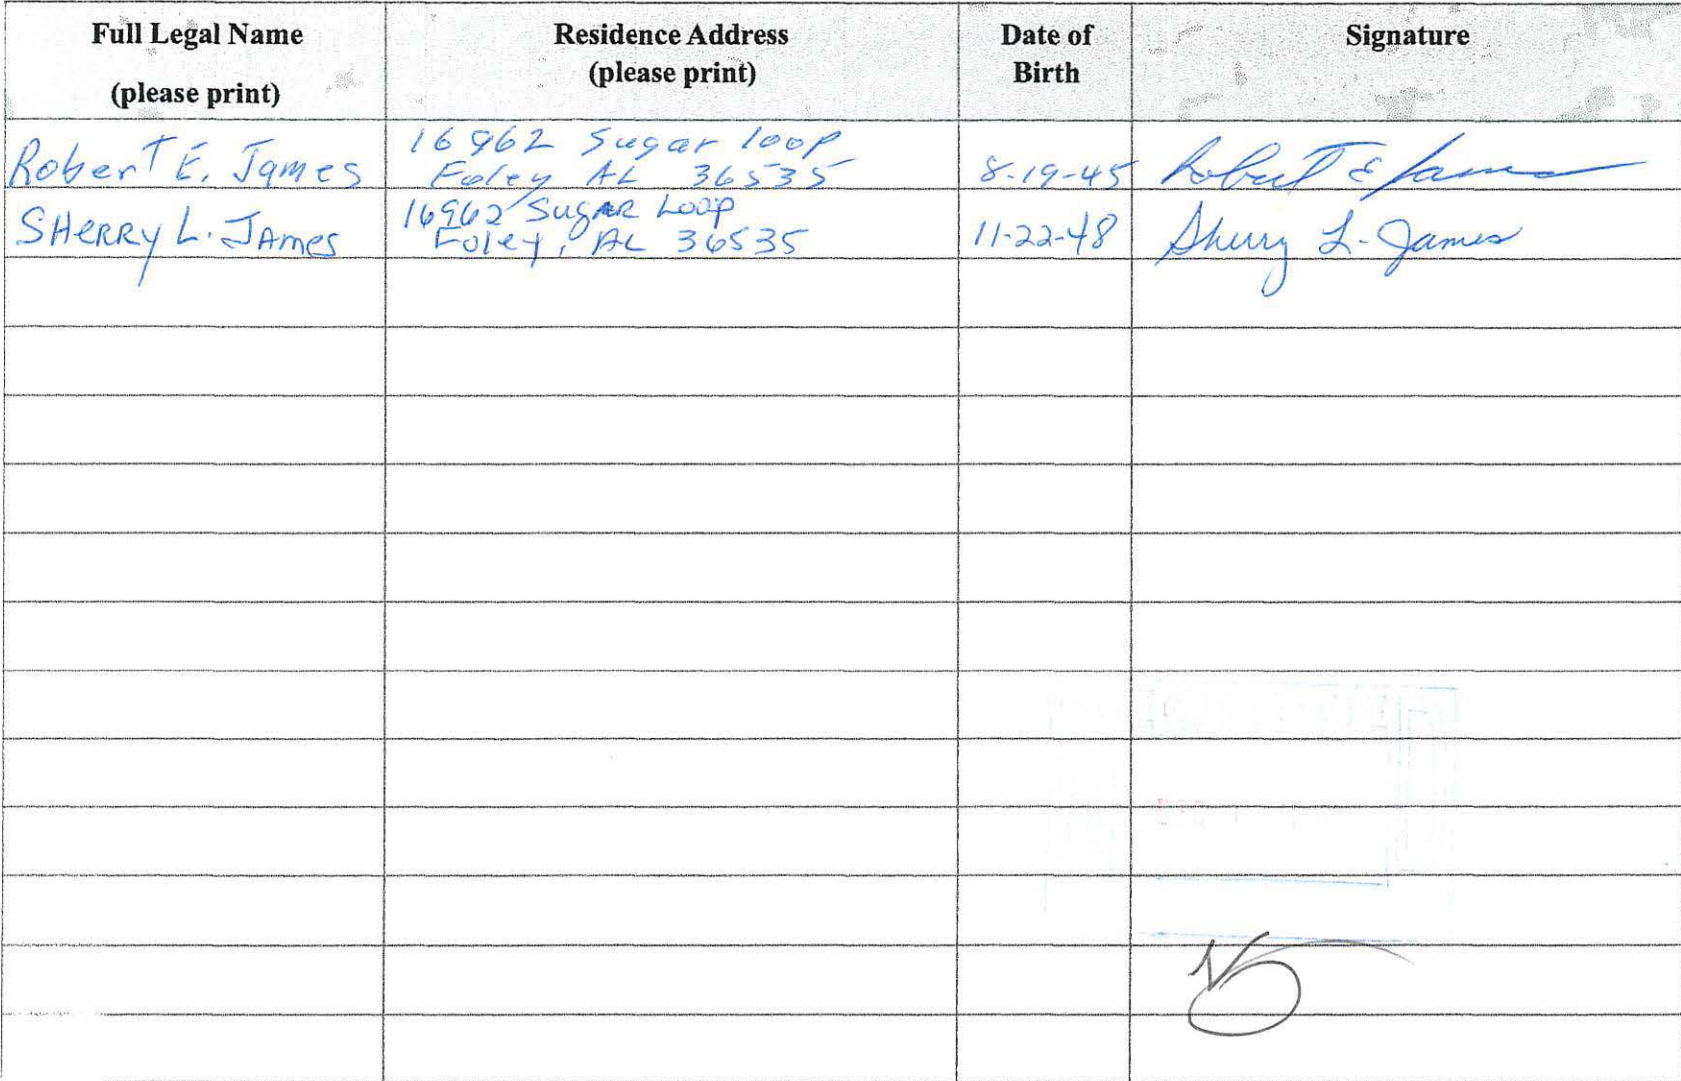 Full Legal Name
(please print)
Residence Address
(please print)
Date of
Birth
Signature
Robert E. James
16962 Sugar loop
Foley AL 36535
8-19-45
Robert E James
SHERRY L. JAmes
16962 SugAR Loop
Foley, AL 36535
11-22-48
Sherry L. James